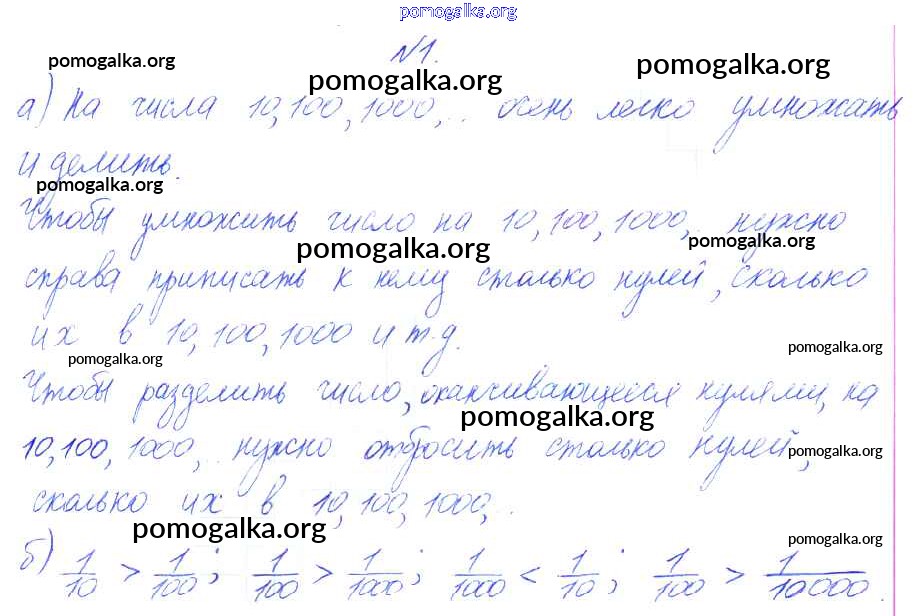 pomogalka.org
№1.
pomogalka.org
pomogalka.org
pomogalka.org
а) На числа 10, 100, 1000, .. очень легко умножать
и делить.
pomogalka.org
Чтобы умножить число на 10, 100, 1000, нужно
pomogalka.org
pomogalka.org
справа приписать к нему столько нулей, сколько
их в 10, 100, 1000 и т.д.
pomogalka.org
pomogalka.org
Чтобы разделить число, оканчивающееся нулями, на
pomogalka.org
10, 100, 1000, нужно отбросить столько нулей,
pomogalka.org
сколько их в 10, 100, 1000, ..
pomogalka.org
pomogalka.org
б) 1/10 > 1/100; 1/100 > 1/1000; 1/1000 < 1/10; 1/100 > 1/10000.